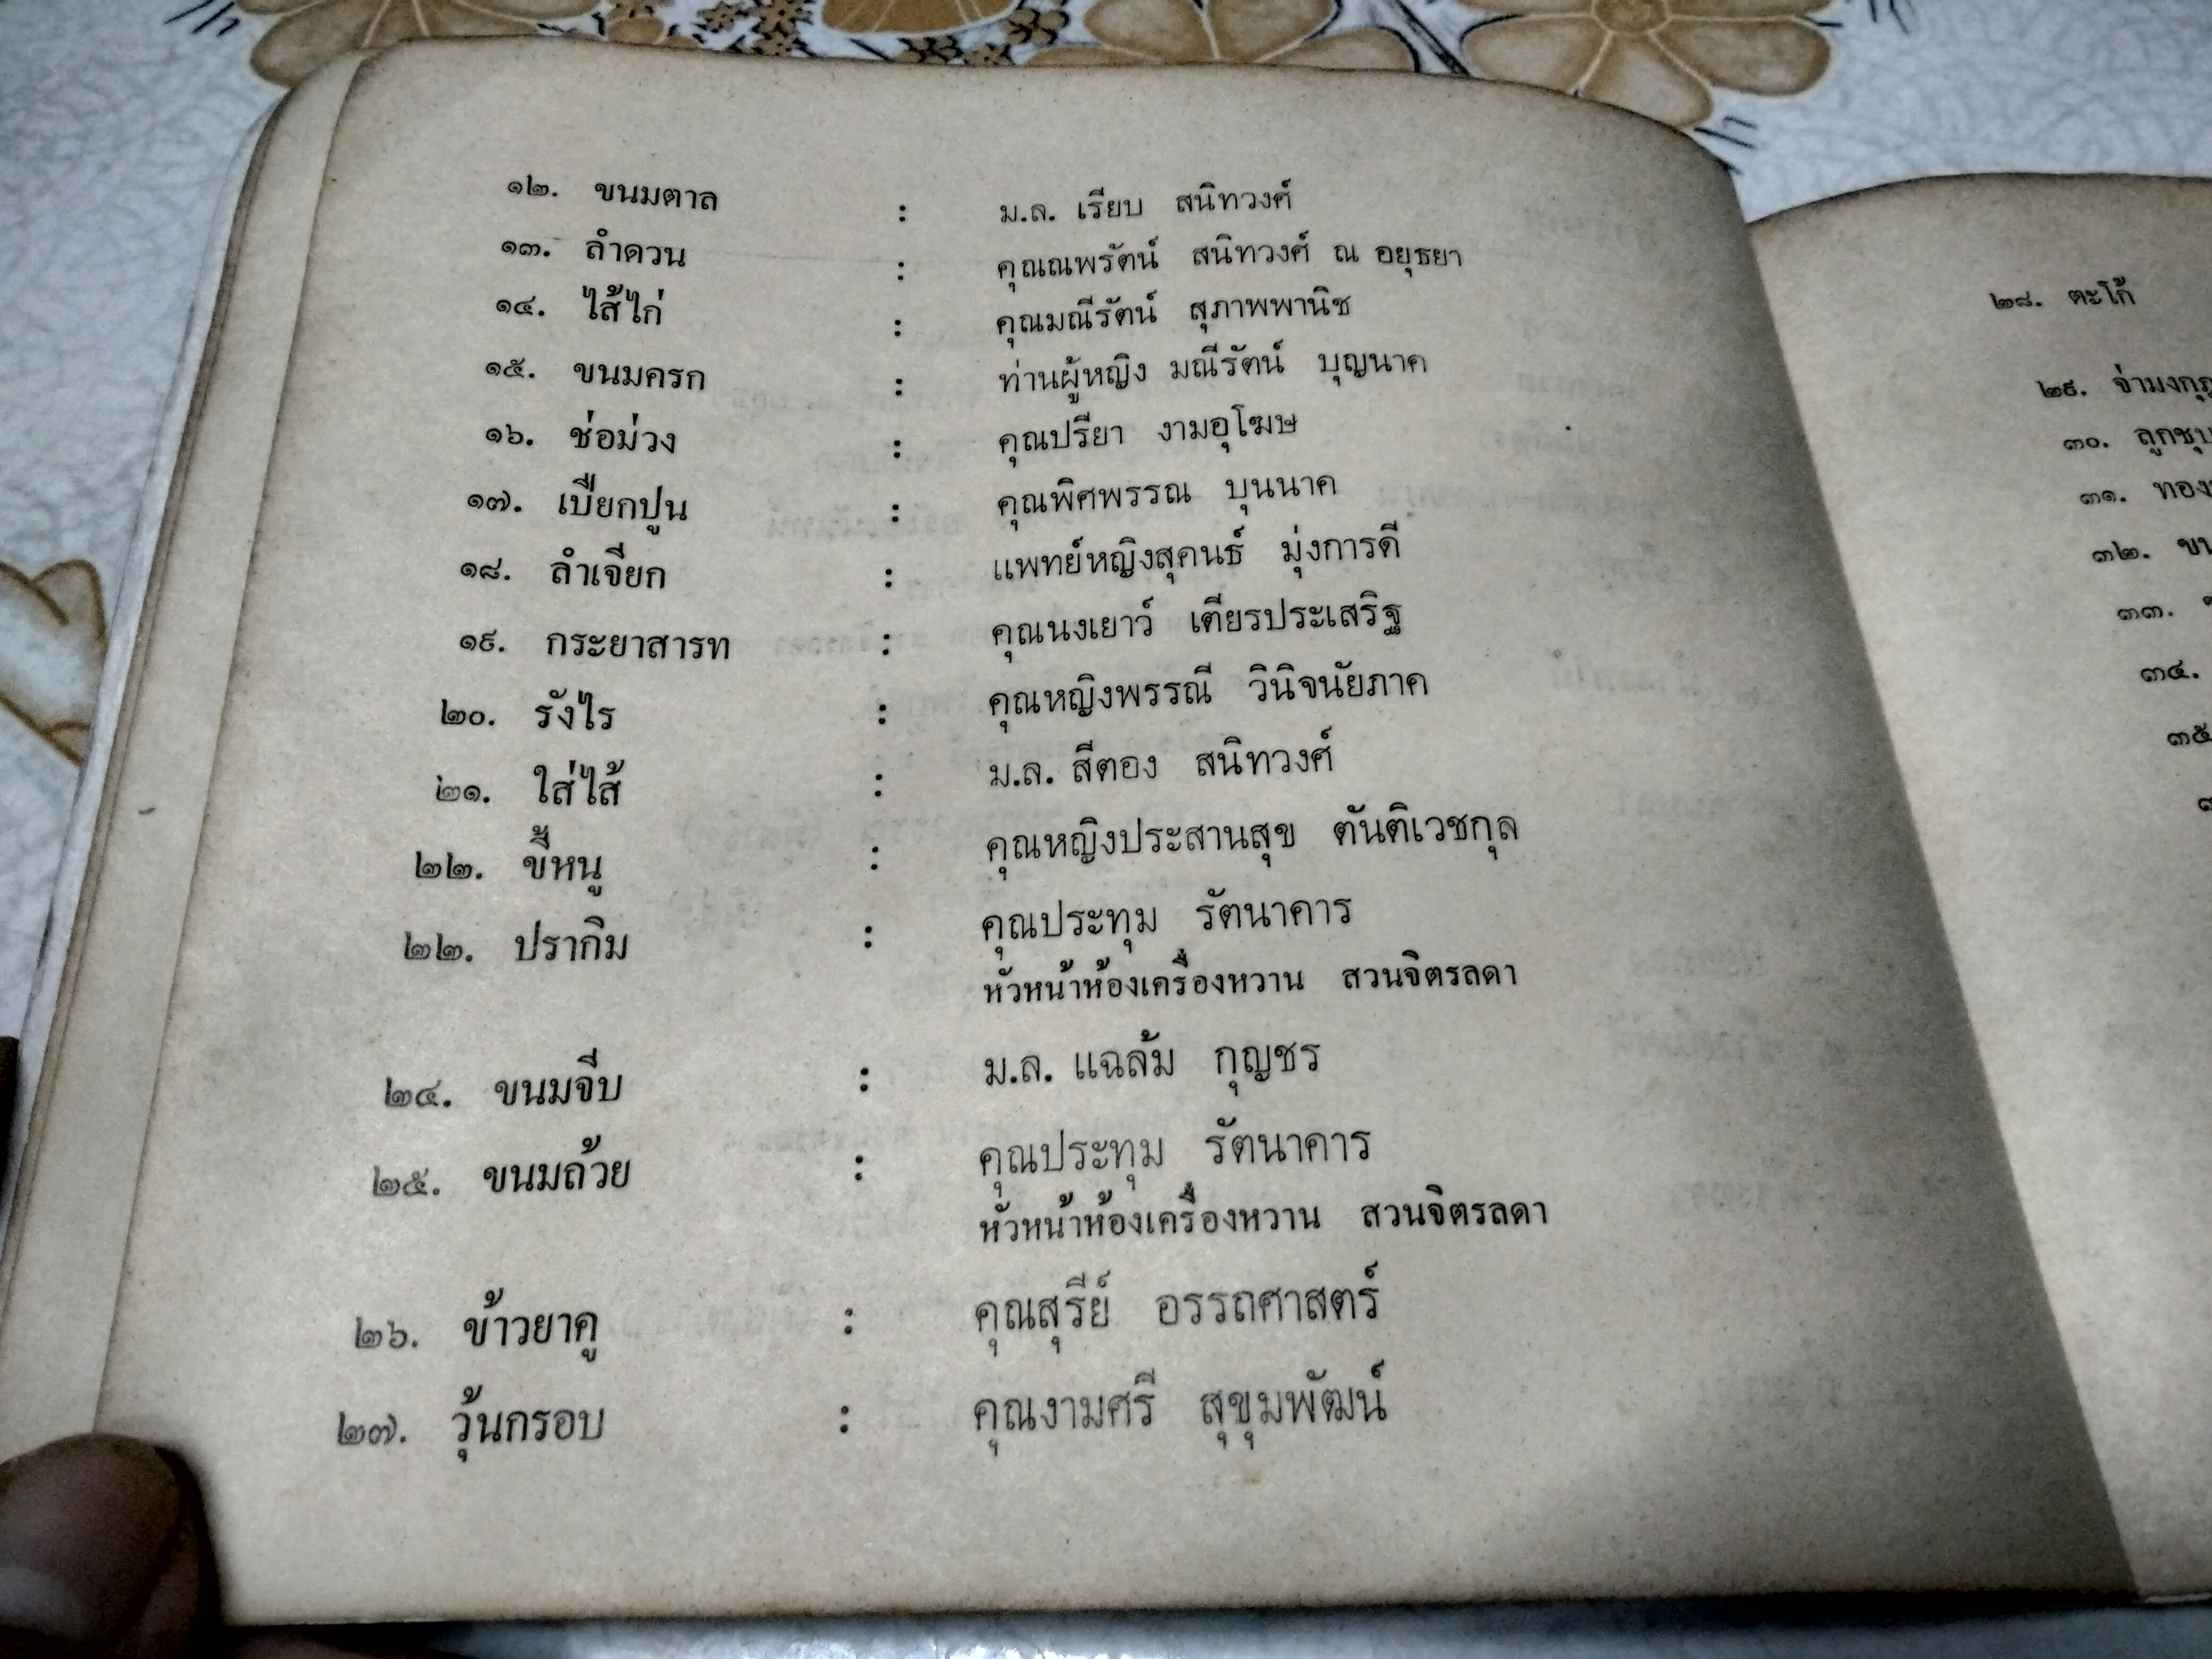 ๑๒. ขนมตาล : ม.ล. เรียบ สนิทวงศ์
๑๓. ลำดวน : คุณณพรัตน์ สนิทวงศ์ ณ อยุธยา
๑๔. ไส้ไก่ : คุณมณีรัตน์ สุภาพพานิช
๑๕. ขนมครก : ท่านผู้หญิง มณีรัตน์ บุญนาค
๑๖. ช่อม่วง : คุณปรียา งามอุโฆษ
๑๗. เปียกปูน : คุณพิศพรรณ บุนนาค
๑๘. ลำเจียก : แพทย์หญิงสุคนธ์ มุ่งการดี
๑๙. กระยาสารท : คุณนงเยาว์ เตียรประเสริฐ
๒๐. รังไร : คุณหญิงพรรณี วินิจนัยภาค
๒๑. ใส่ไส้ : ม.ล. สีตอง สนิทวงศ์
๒๒. ขี้หนู : คุณหญิงประสานสุข ตันติเวชกุล
๒๒. ปรากิม : คุณประทุม รัตนาคาร
หัวหน้าห้องเครื่องหวาน สวนจิตรลดา
๒๔. ขนมจีบ : ม.ล. แฉล้ม กุญชร
๒๕. ขนมถ้วย : คุณประทุม รัตนาคาร
หัวหน้าห้องเครื่องหวาน สวนจิตรลดา
๒๖. ข้าวยาคู : คุณสุรีย์ อรรถศาสตร์
๒๗. วุ้นกรอบ : คุณงามศรี สุขุมพัฒน์
๒๘. ตะโก้
๒๙.
๓๐.
๓๑.
๓๒.
๓๓.
๓๔.